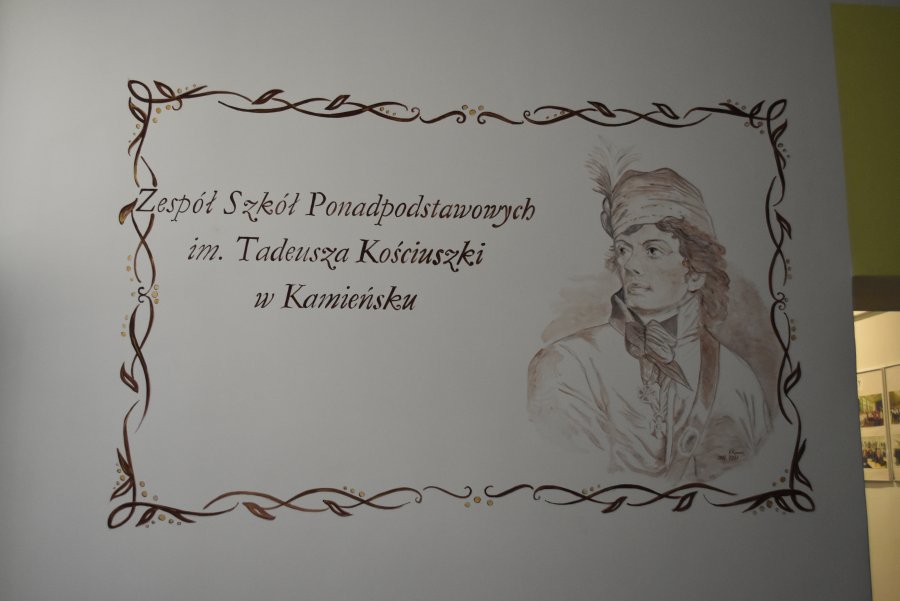 Zespół Szkół Ponadpodstawowych
im. Tadeusza Kościuszki
w Kamieńsku